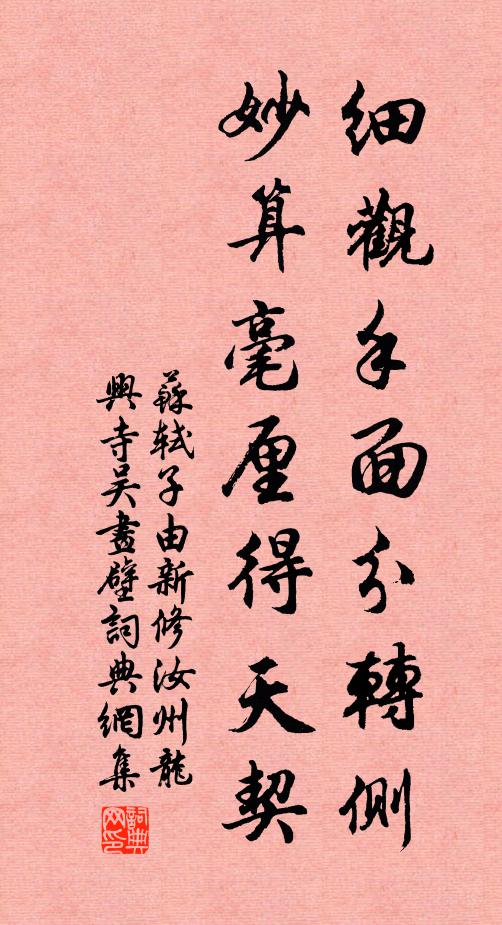 細觀手面分轉側
妙算毫厘得天契
蘇軾子由新修汝州龍
興寺吳畫壁詞典網集
詞典网印